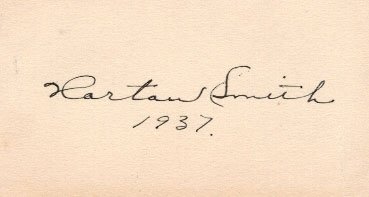 Horton Smith
1937.